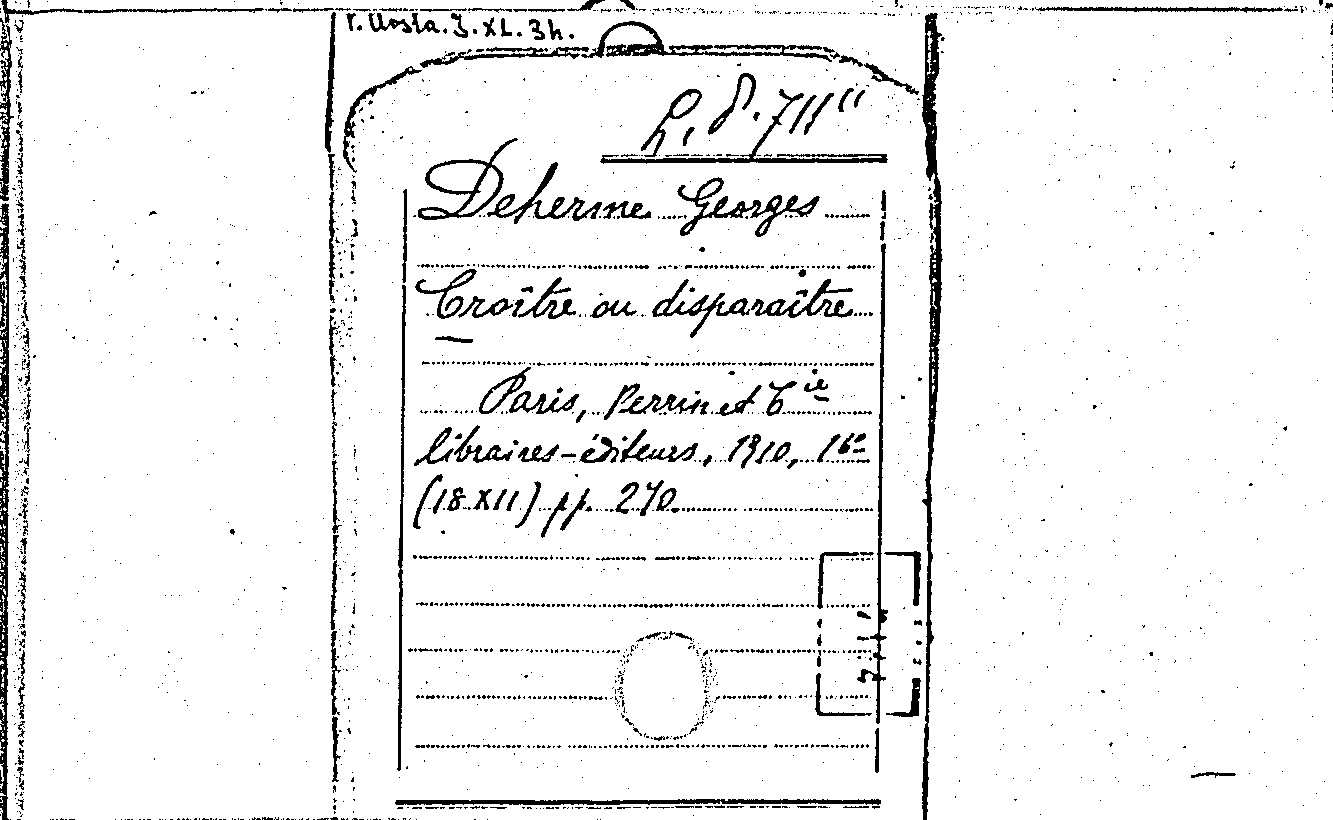 r. Aosta. J. XL. 34.
Deherme Georges
Croître ou disparaître
Paris, Perrin et Cie
libraires-éditeurs, 1910, 16º
(18 XII) pp. 270.